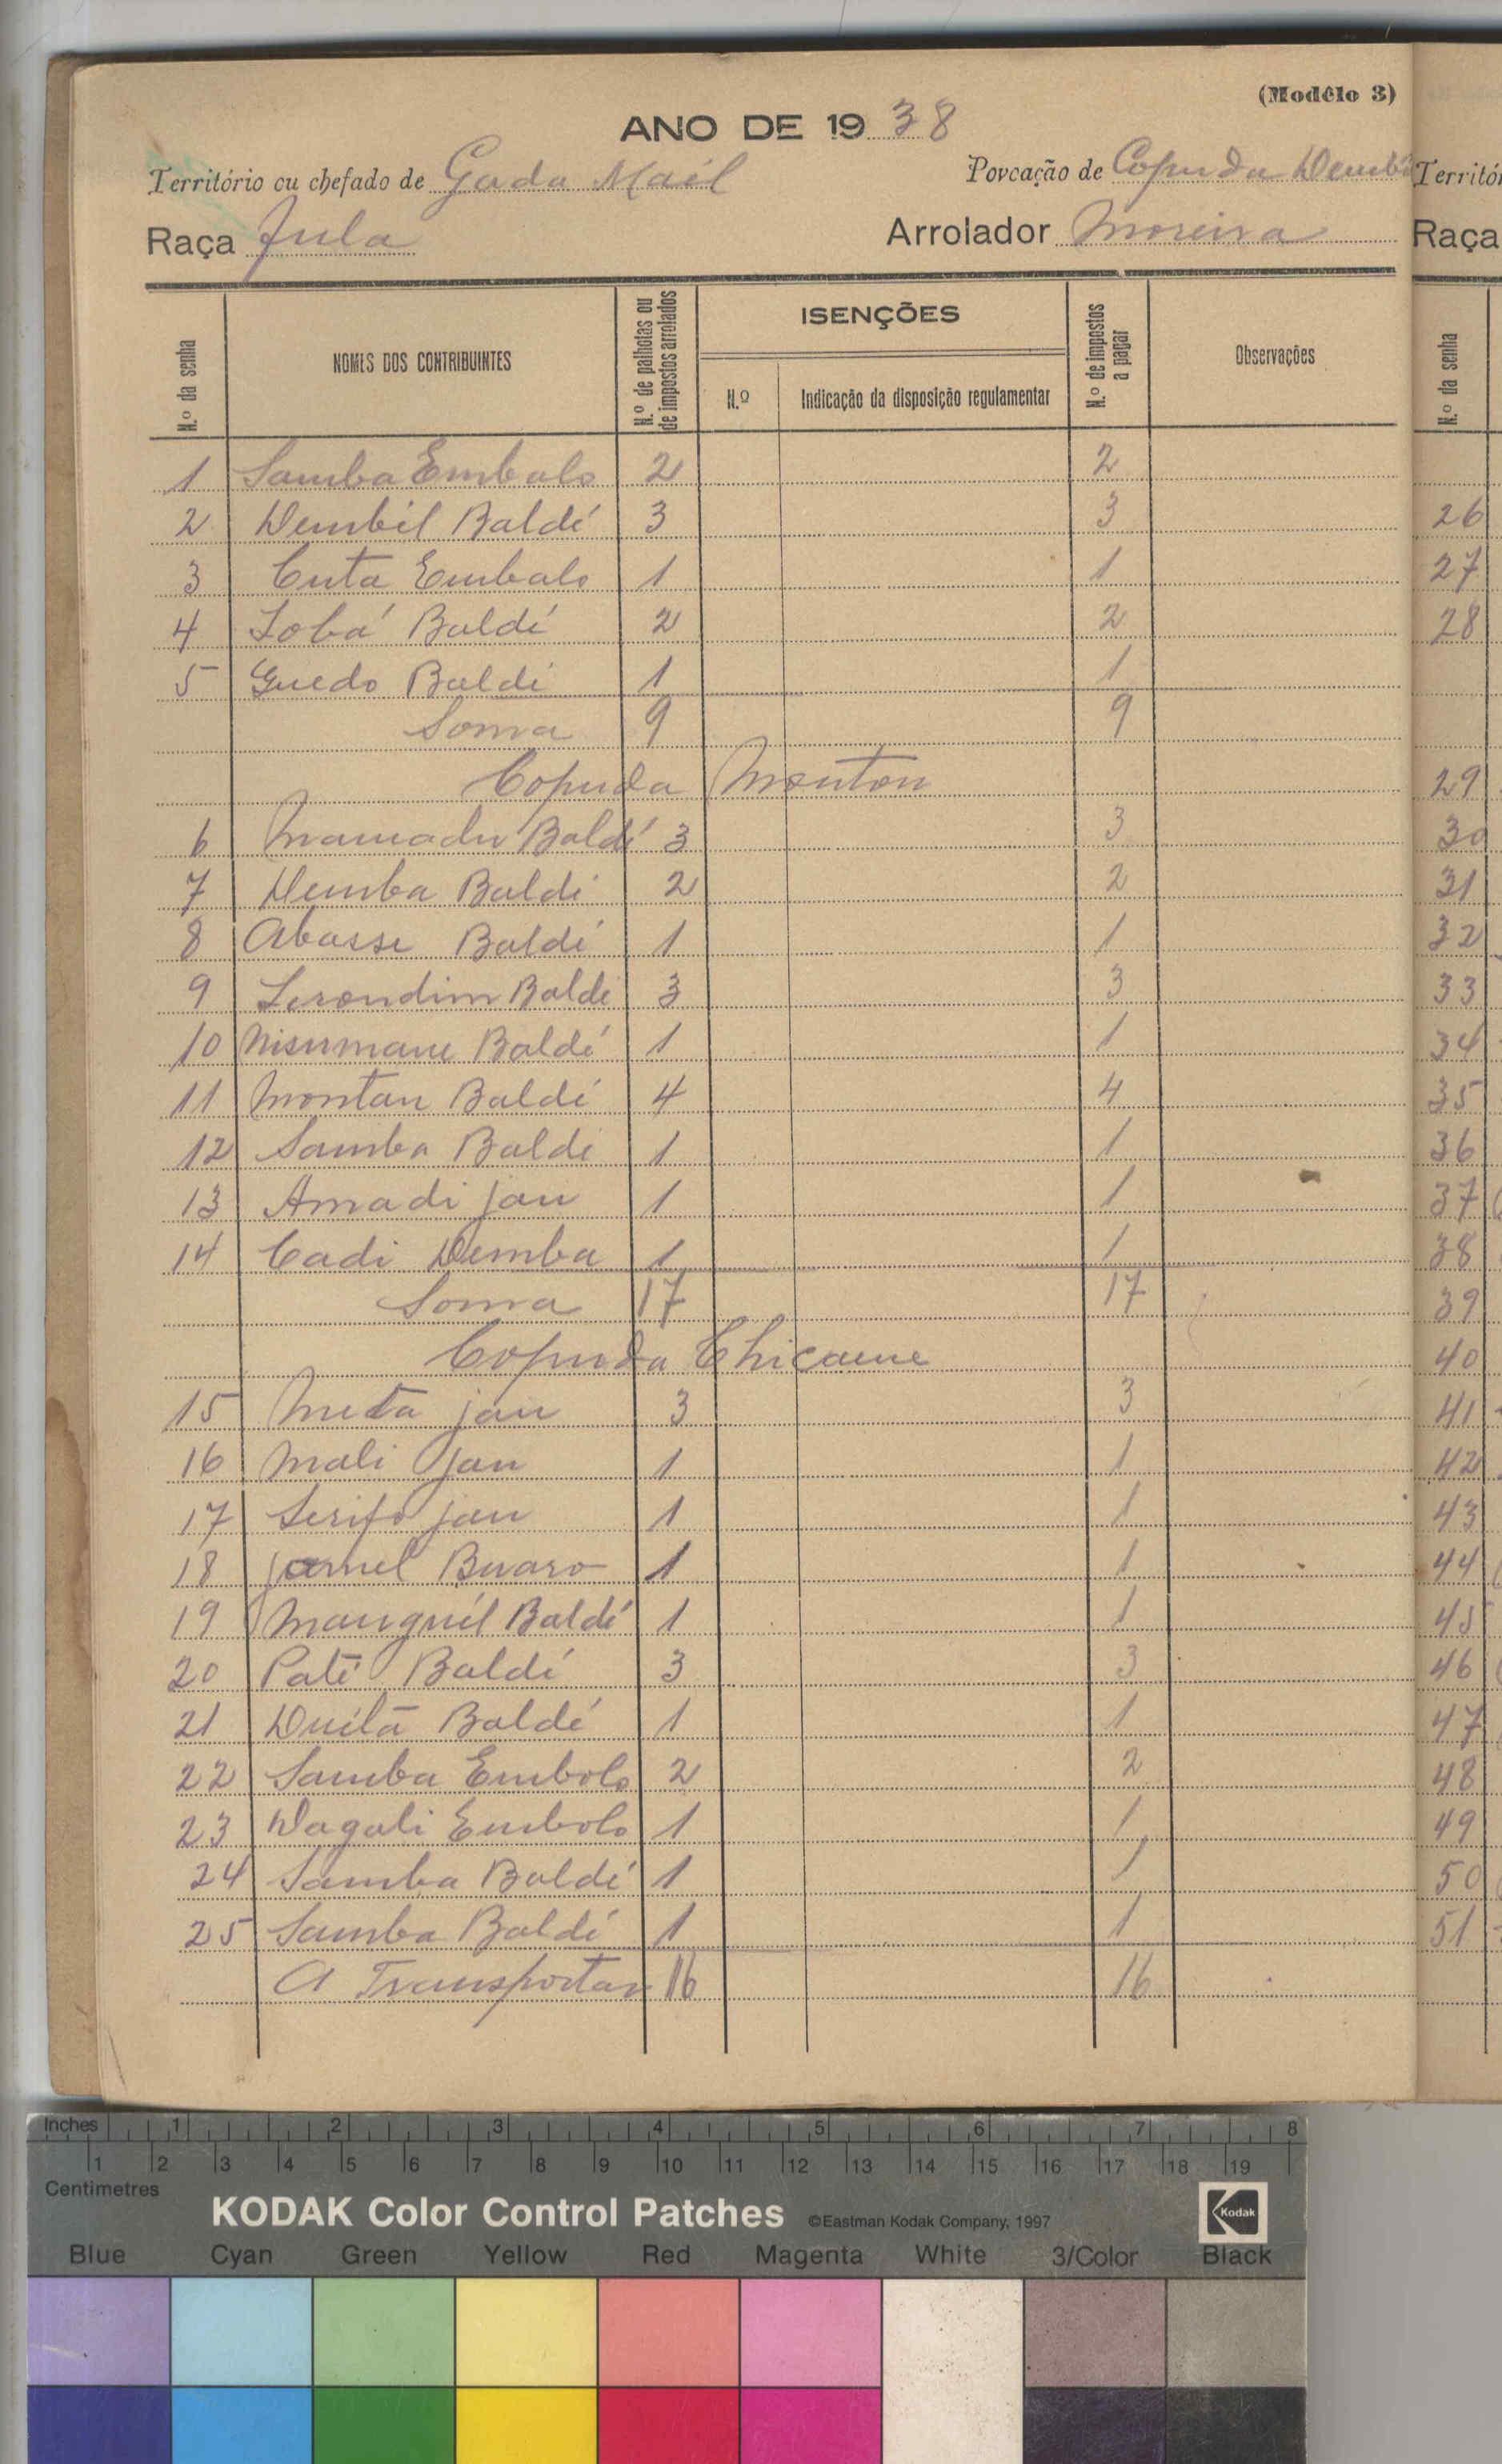 (Modêlo 3)
ANO DE 19 38
Território ou chefado de Gada Mael
Povoação de Copuda Demb
Raça Fula
Arrolador Moreira
N.º da senha
NOMES DOS CONTRIBUINTES
N.º de palhotas ou de impostos arrolados
ISENÇÕES
N.º
Indicação da disposição regulamentar
N.º de impostos a pagar
Observações
1 Samba Embalo 2 2
2 Dembél Baldé 3 3
3 Cuta Embalo 1 1
4 Iobá Baldé 2 2
5 Guedo Baldé 1 1
Soma 9 9
Copuda Monton
6 Mamadu Baldé 3 3
7 Demba Baldé 2 2
8 Abasse Baldé 1 1
9 Serondim Baldé 3 3
10 Baldé 1 1
11 Montan Baldé 4 4
12 Samba Baldé 1 1
13 Amadi jau 1 1
14 Cadi Demba 1 1
Soma 17 17
Copuda Chicame
15 Meta jau 3 3
16 Mali Jau 1 1
17 Serifo jau 1 1
18 Buaro 1 1
19 Manguél Baldé 1 1
20 Paté Baldé 3 3
21 Baldé 1 1
22 Samba Embalo 2 2
23 Dagali Embalo 1 1
24 Samba Baldé 1 1
25 Samba Baldé 1 1
A Transportar 16 16
Territó
Raça
N.º da senha
26
27
28
29
30
31
32
33
34
35
36
37
38
39
40
41
42
43
44
45
46
47
48
49
50
51
Inches 1 2 3 4 5 6 7 8
1 2 3 4 5 6 7 8 9 10 11 12 13 14 15 16 17 18 19
Centimetres
KODAK Color Control Patches ©Eastman Kodak Company, 1997 Kodak
Blue Cyan Green Yellow Red Magenta White 3/Color Black